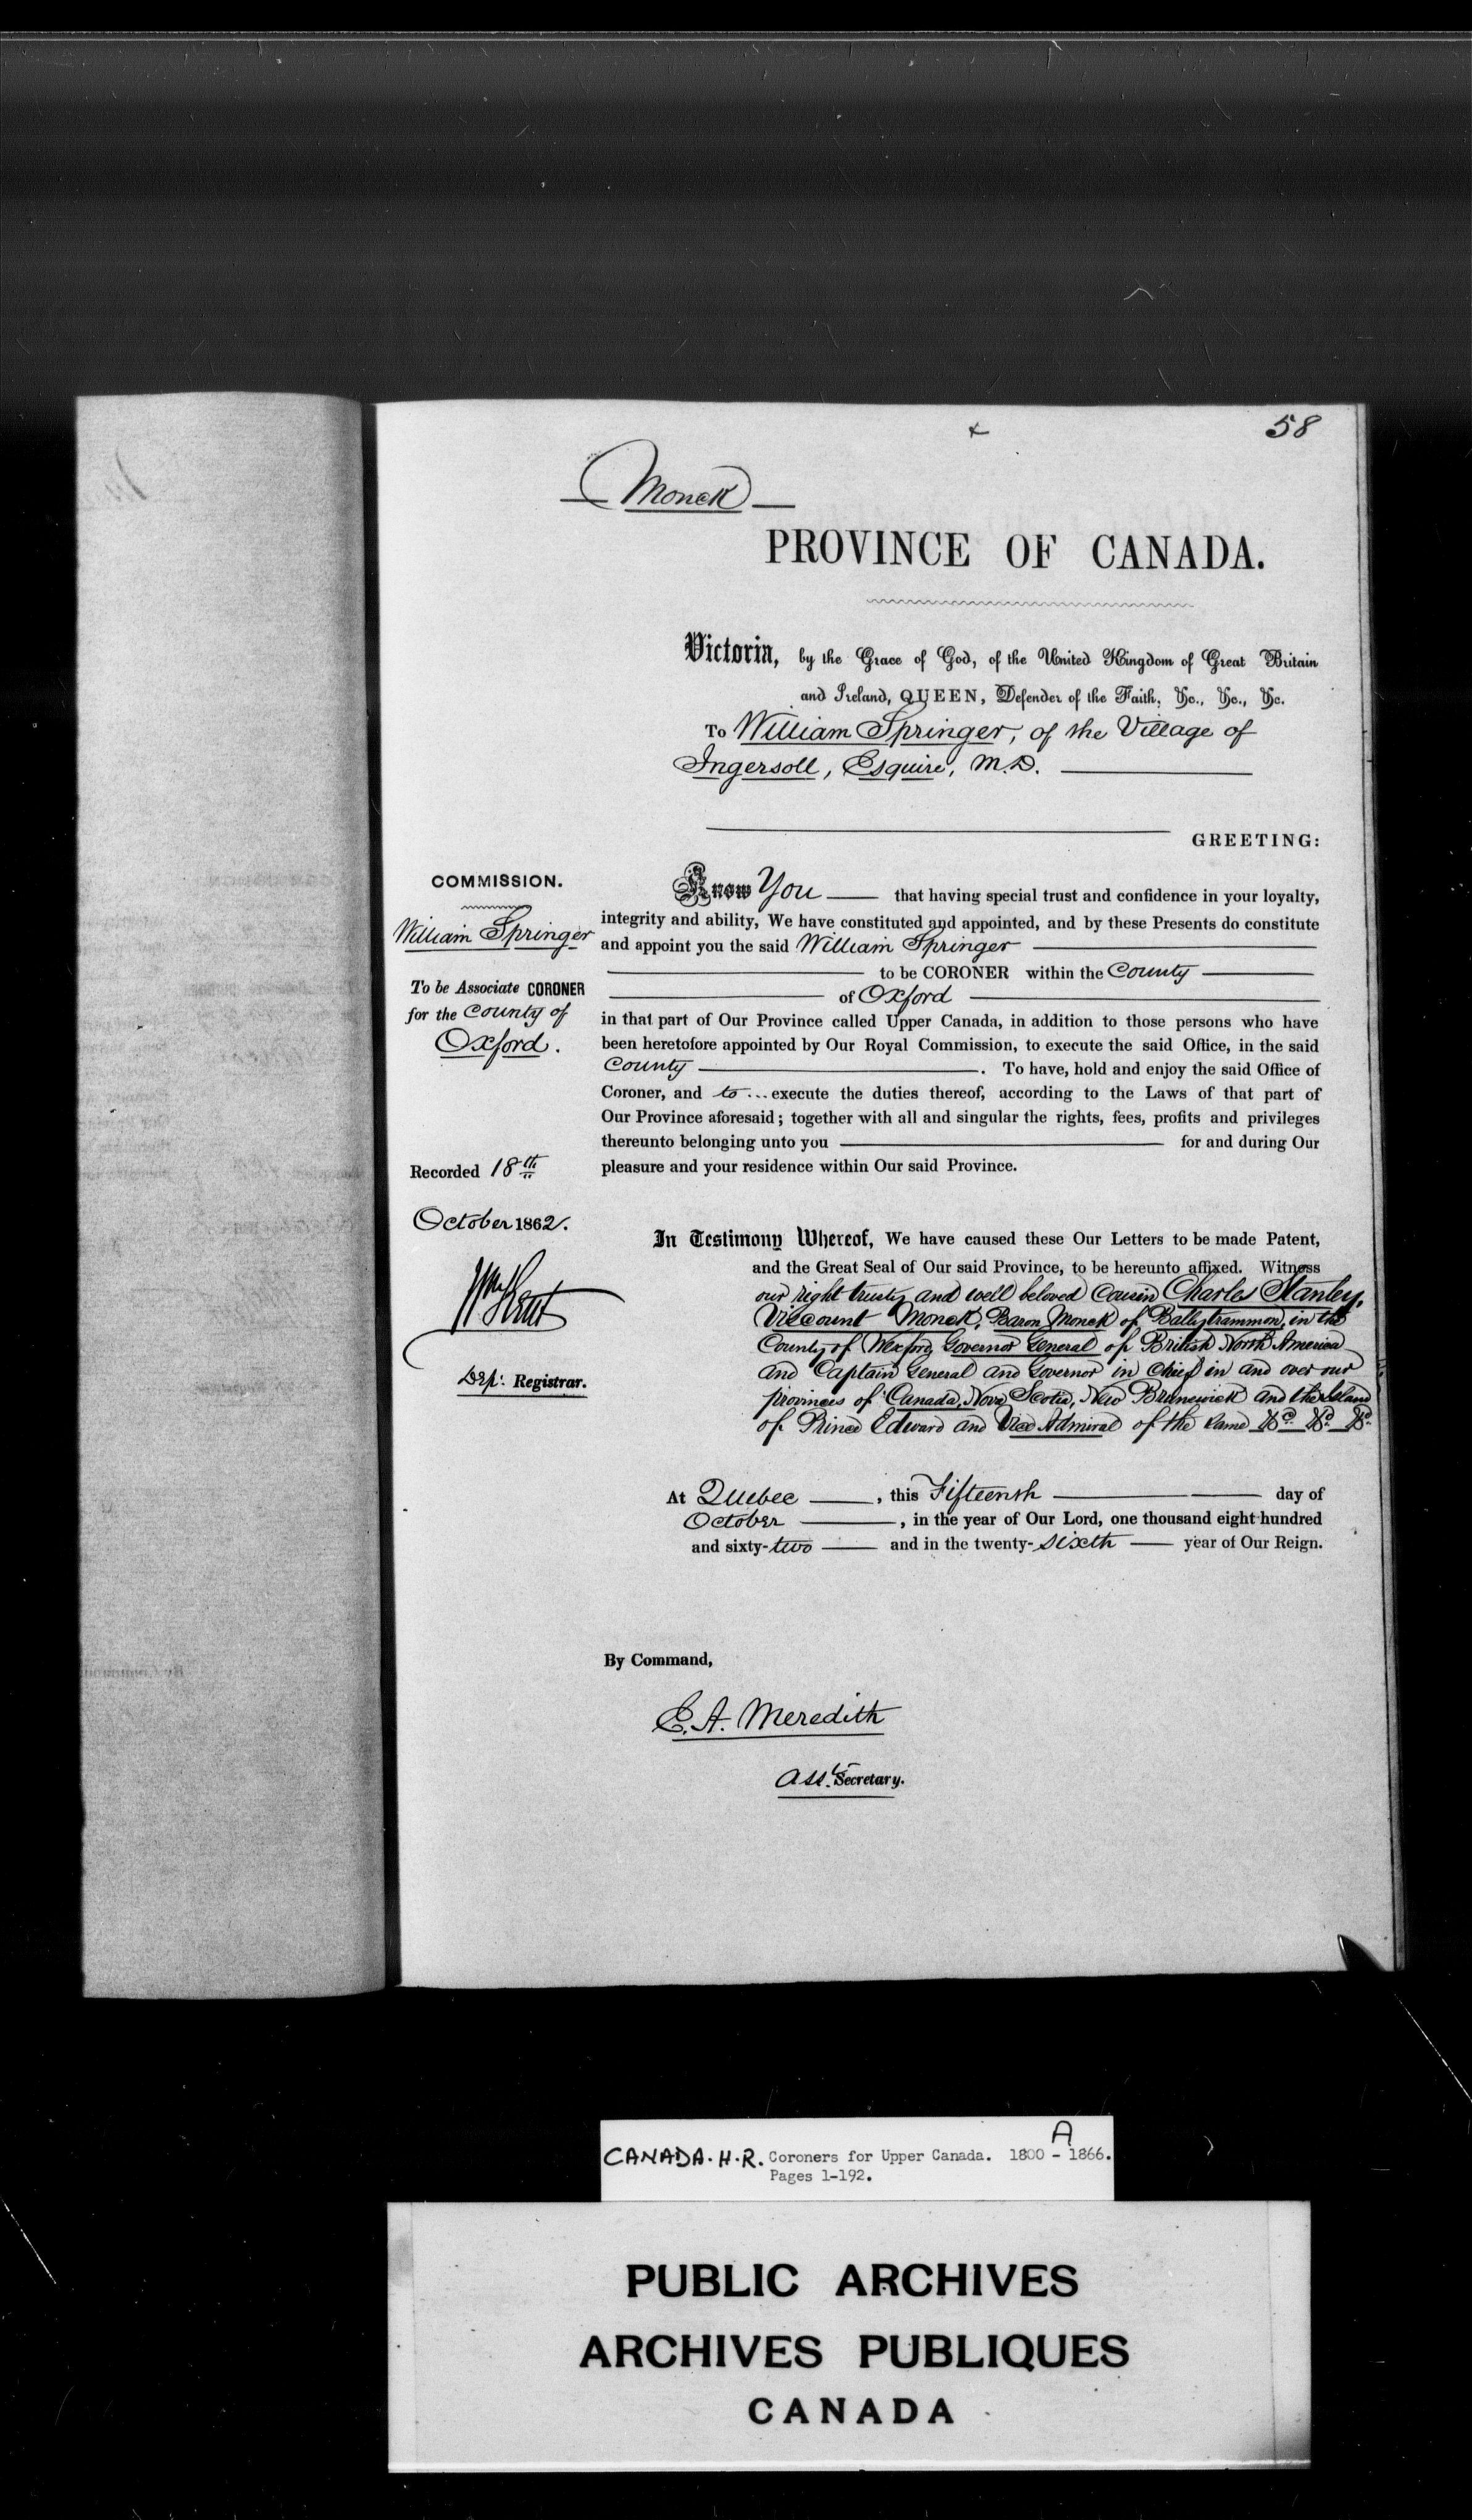 58
Monck
PROVINCE OF CANADA.
Victoria, by the Grace of God, of the United Kingdom of Great Britain
and Ireland, QUEEN, Defender of the Faith, &c., &c., &c.
To William Springer, of the Village of
Ingersoll, Esquire, M.D.
GREETING:
COMMISSION.
William Springer
To be Associate CORONER
for the County of
Oxford.
Recorded 18th
October 1862.
Dep: Registrar.
Know You that having special trust and confidence in your loyalty,
integrity and ability, We have constituted and appointed, and by these Presents do constitute
and appoint you the said William Springer
to be CORONER within the County
of Oxford
in that part of Our Province called Upper Canada, in addition to those persons who have
been heretofore appointed by Our Royal Commission, to execute the said Office, in the said
County . To have, hold and enjoy the said Office of
Coroner, and to ... execute the duties thereof, according to the Laws of that part of
Our Province aforesaid; together with all and singular the rights, fees, profits and privileges
thereunto belonging unto you for and during Our
pleasure and your residence within Our said Province.
In Testimony Whereof, We have caused these Our Letters to be made Patent,
and the Great Seal of Our said Province, to be hereunto affixed. Witness
our right trusty and well beloved Cousin Charles Stanley,
Viscount Monck, Baron Monck of Ballytrammon, in the
County of Wexford, Governor General of British North America
and Captain General and Governor in Chief in and over our
provinces of Canada, Nova Scotia, New Brunswick and the Island
of Prince Edward and Vice Admiral of the same &c. &c. &c.
At Quebec , this Fifteenth day of
October , in the year of Our Lord, one thousand eight hundred
and sixty-two and in the twenty-sixth year of Our Reign.
By Command,
E. A. Meredith
Asst. Secretary.
CANADA. H. R. Coroners for Upper Canada. 1800 A - 1866.
Pages 1-192.
PUBLIC ARCHIVES
ARCHIVES PUBLIQUES
CANADA